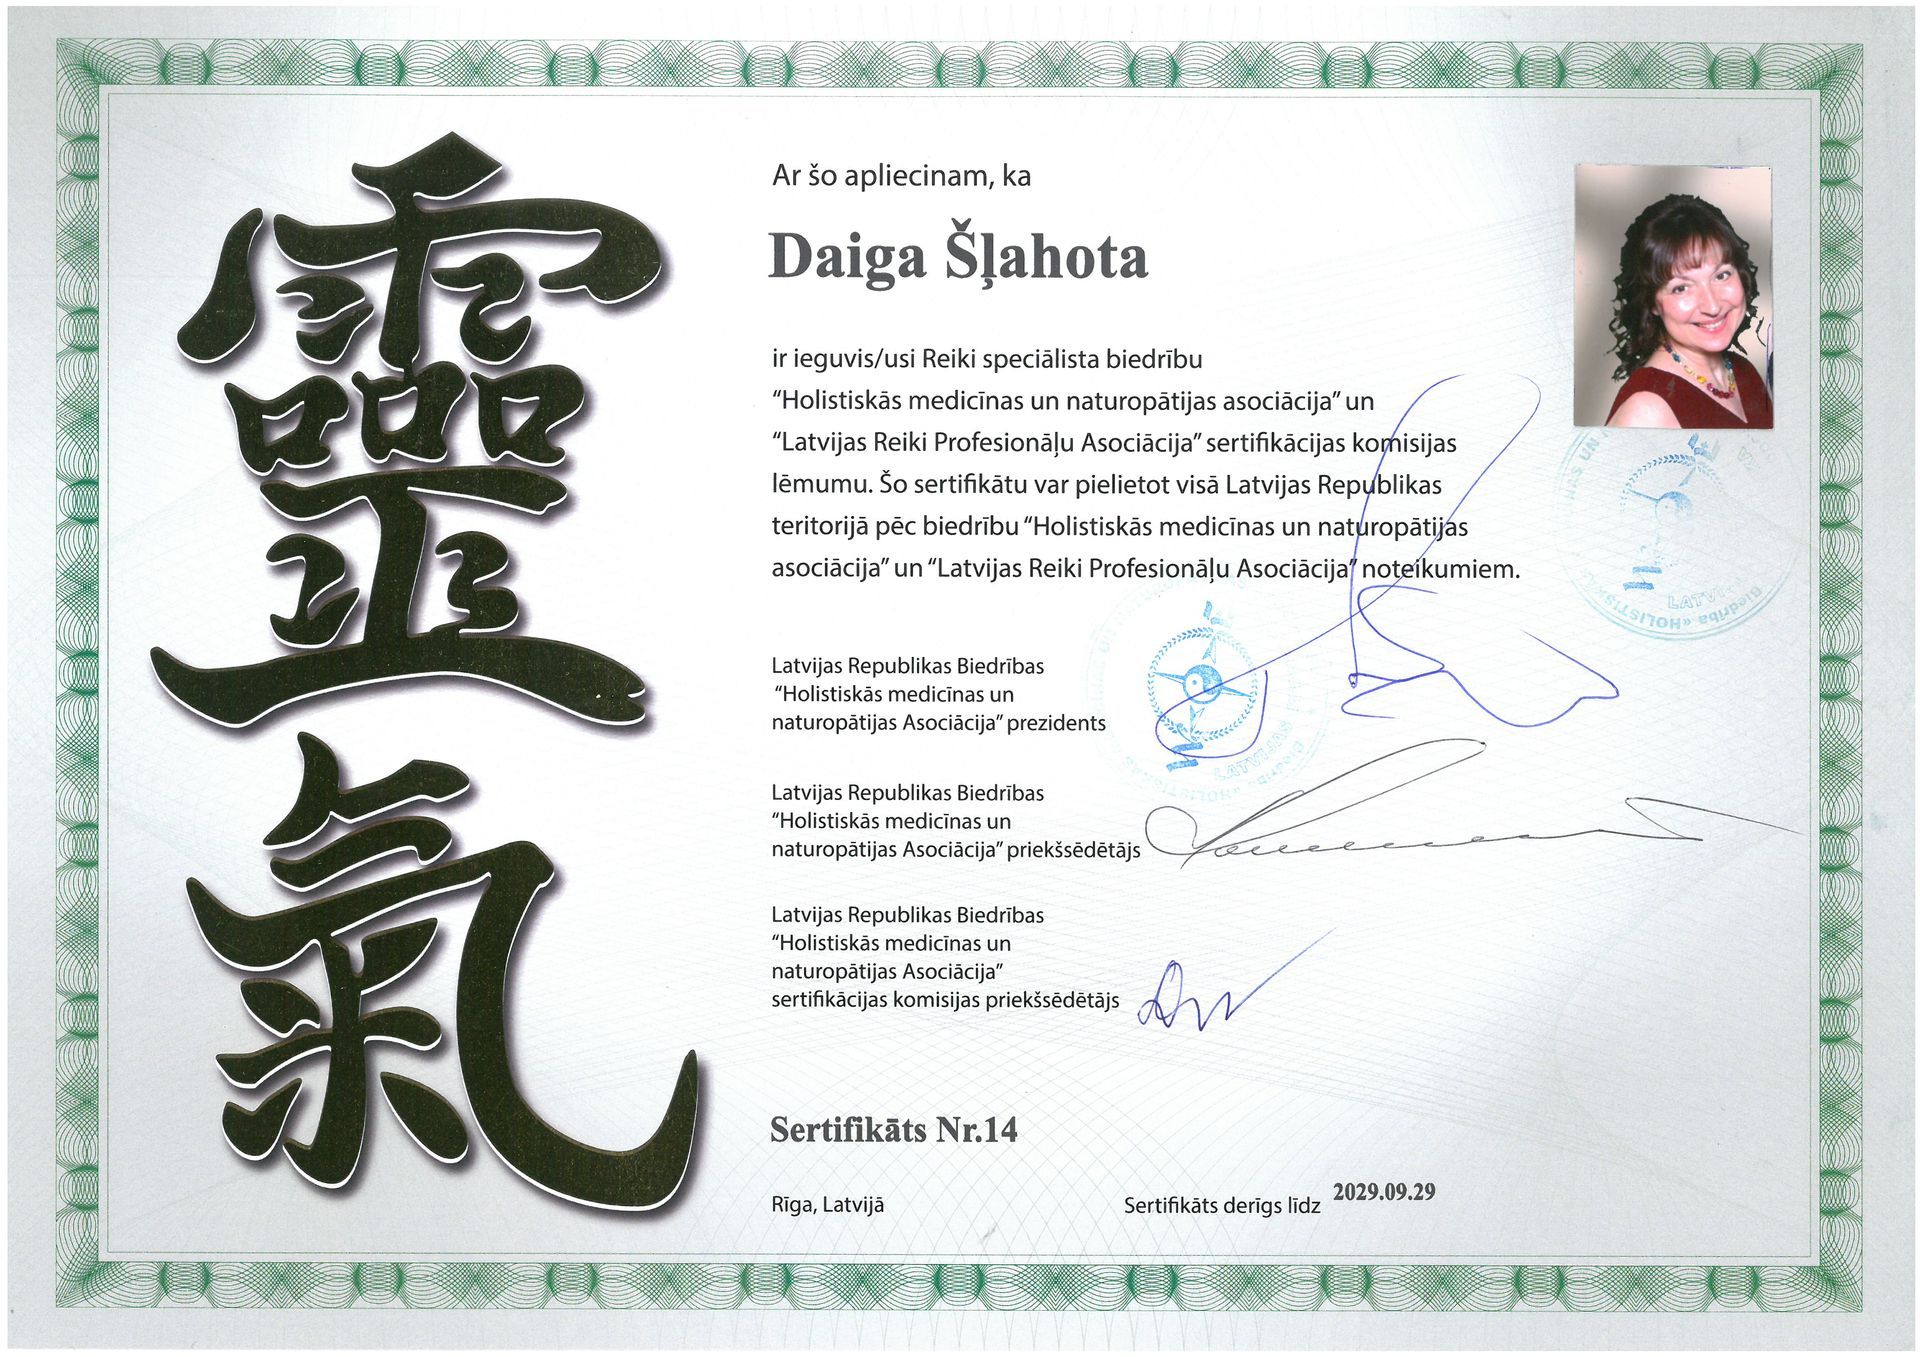 靈
氣
Ar šo apliecinam, ka
Daiga Šļahota
ir ieguvis/usi Reiki speciālista biedrību
“Holistiskās medicīnas un naturopātijas asociācija” un
“Latvijas Reiki Profesionāļu Asociācija” sertifikācijas komisijas
lēmumu. Šo sertifikātu var pielietot visā Latvijas Republikas
teritorijā pēc biedrību “Holistiskās medicīnas un naturopātijas
asociācija” un “Latvijas Reiki Profesionāļu Asociācija” noteikumiem.
Latvijas Republikas Biedrības
“Holistiskās medicīnas un
naturopātijas Asociācija” prezidents
Latvijas Republikas Biedrības
“Holistiskās medicīnas un
naturopātijas Asociācija” priekšsēdētājs
Latvijas Republikas Biedrības
“Holistiskās medicīnas un
naturopātijas Asociācija”
sertifikācijas komisijas priekšsēdētājs
Sertifikāts Nr.14
Rīga, Latvijā
Sertifikāts derīgs līdz 2029.09.29